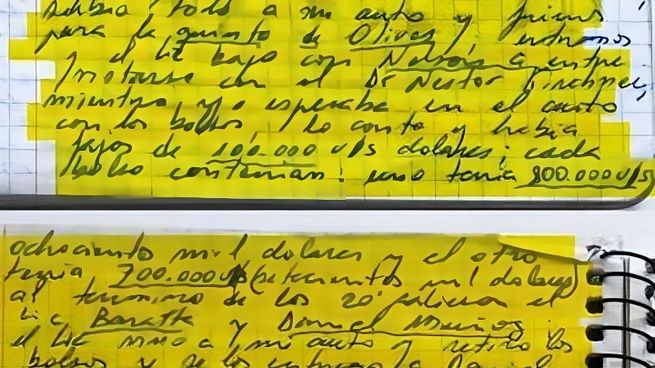 todo a mi auto y fuimos
para la quinta de Olivos, entramos
y el Lic bajo con Nelson a entre
el Dr Nestor
mientras yo esperaba en el auto
con los bolsos, lo conto y habia
fajos de 100.000 u/s dolares; cada
bolso contenian: uno tenia 800.000 u/s
ochociento mil dolares y el otro
tenia 700.000 u/s (setecientos mil dolares)
al termino de los 20' salieron el
Lic Baratta y Daniel Muñoz
el Lic vino a mi auto y retiro los
bolsos y se los a Daniel